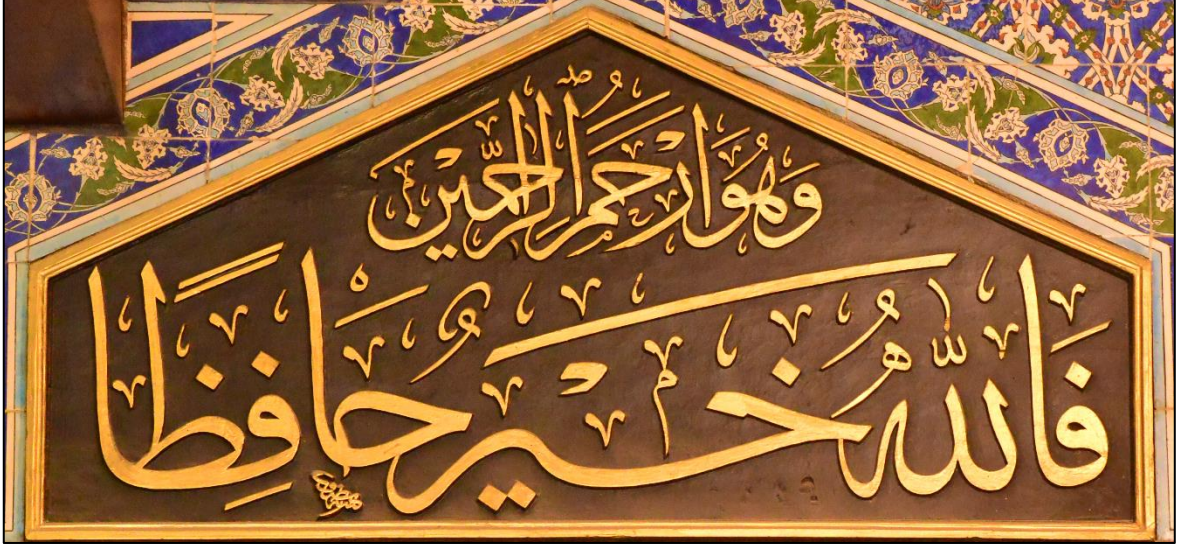 فَاللّٰهُ خَيْرٌ حَافِظًا
وَهُوَ اَرْحَمُ الرّٰحِمِينَ